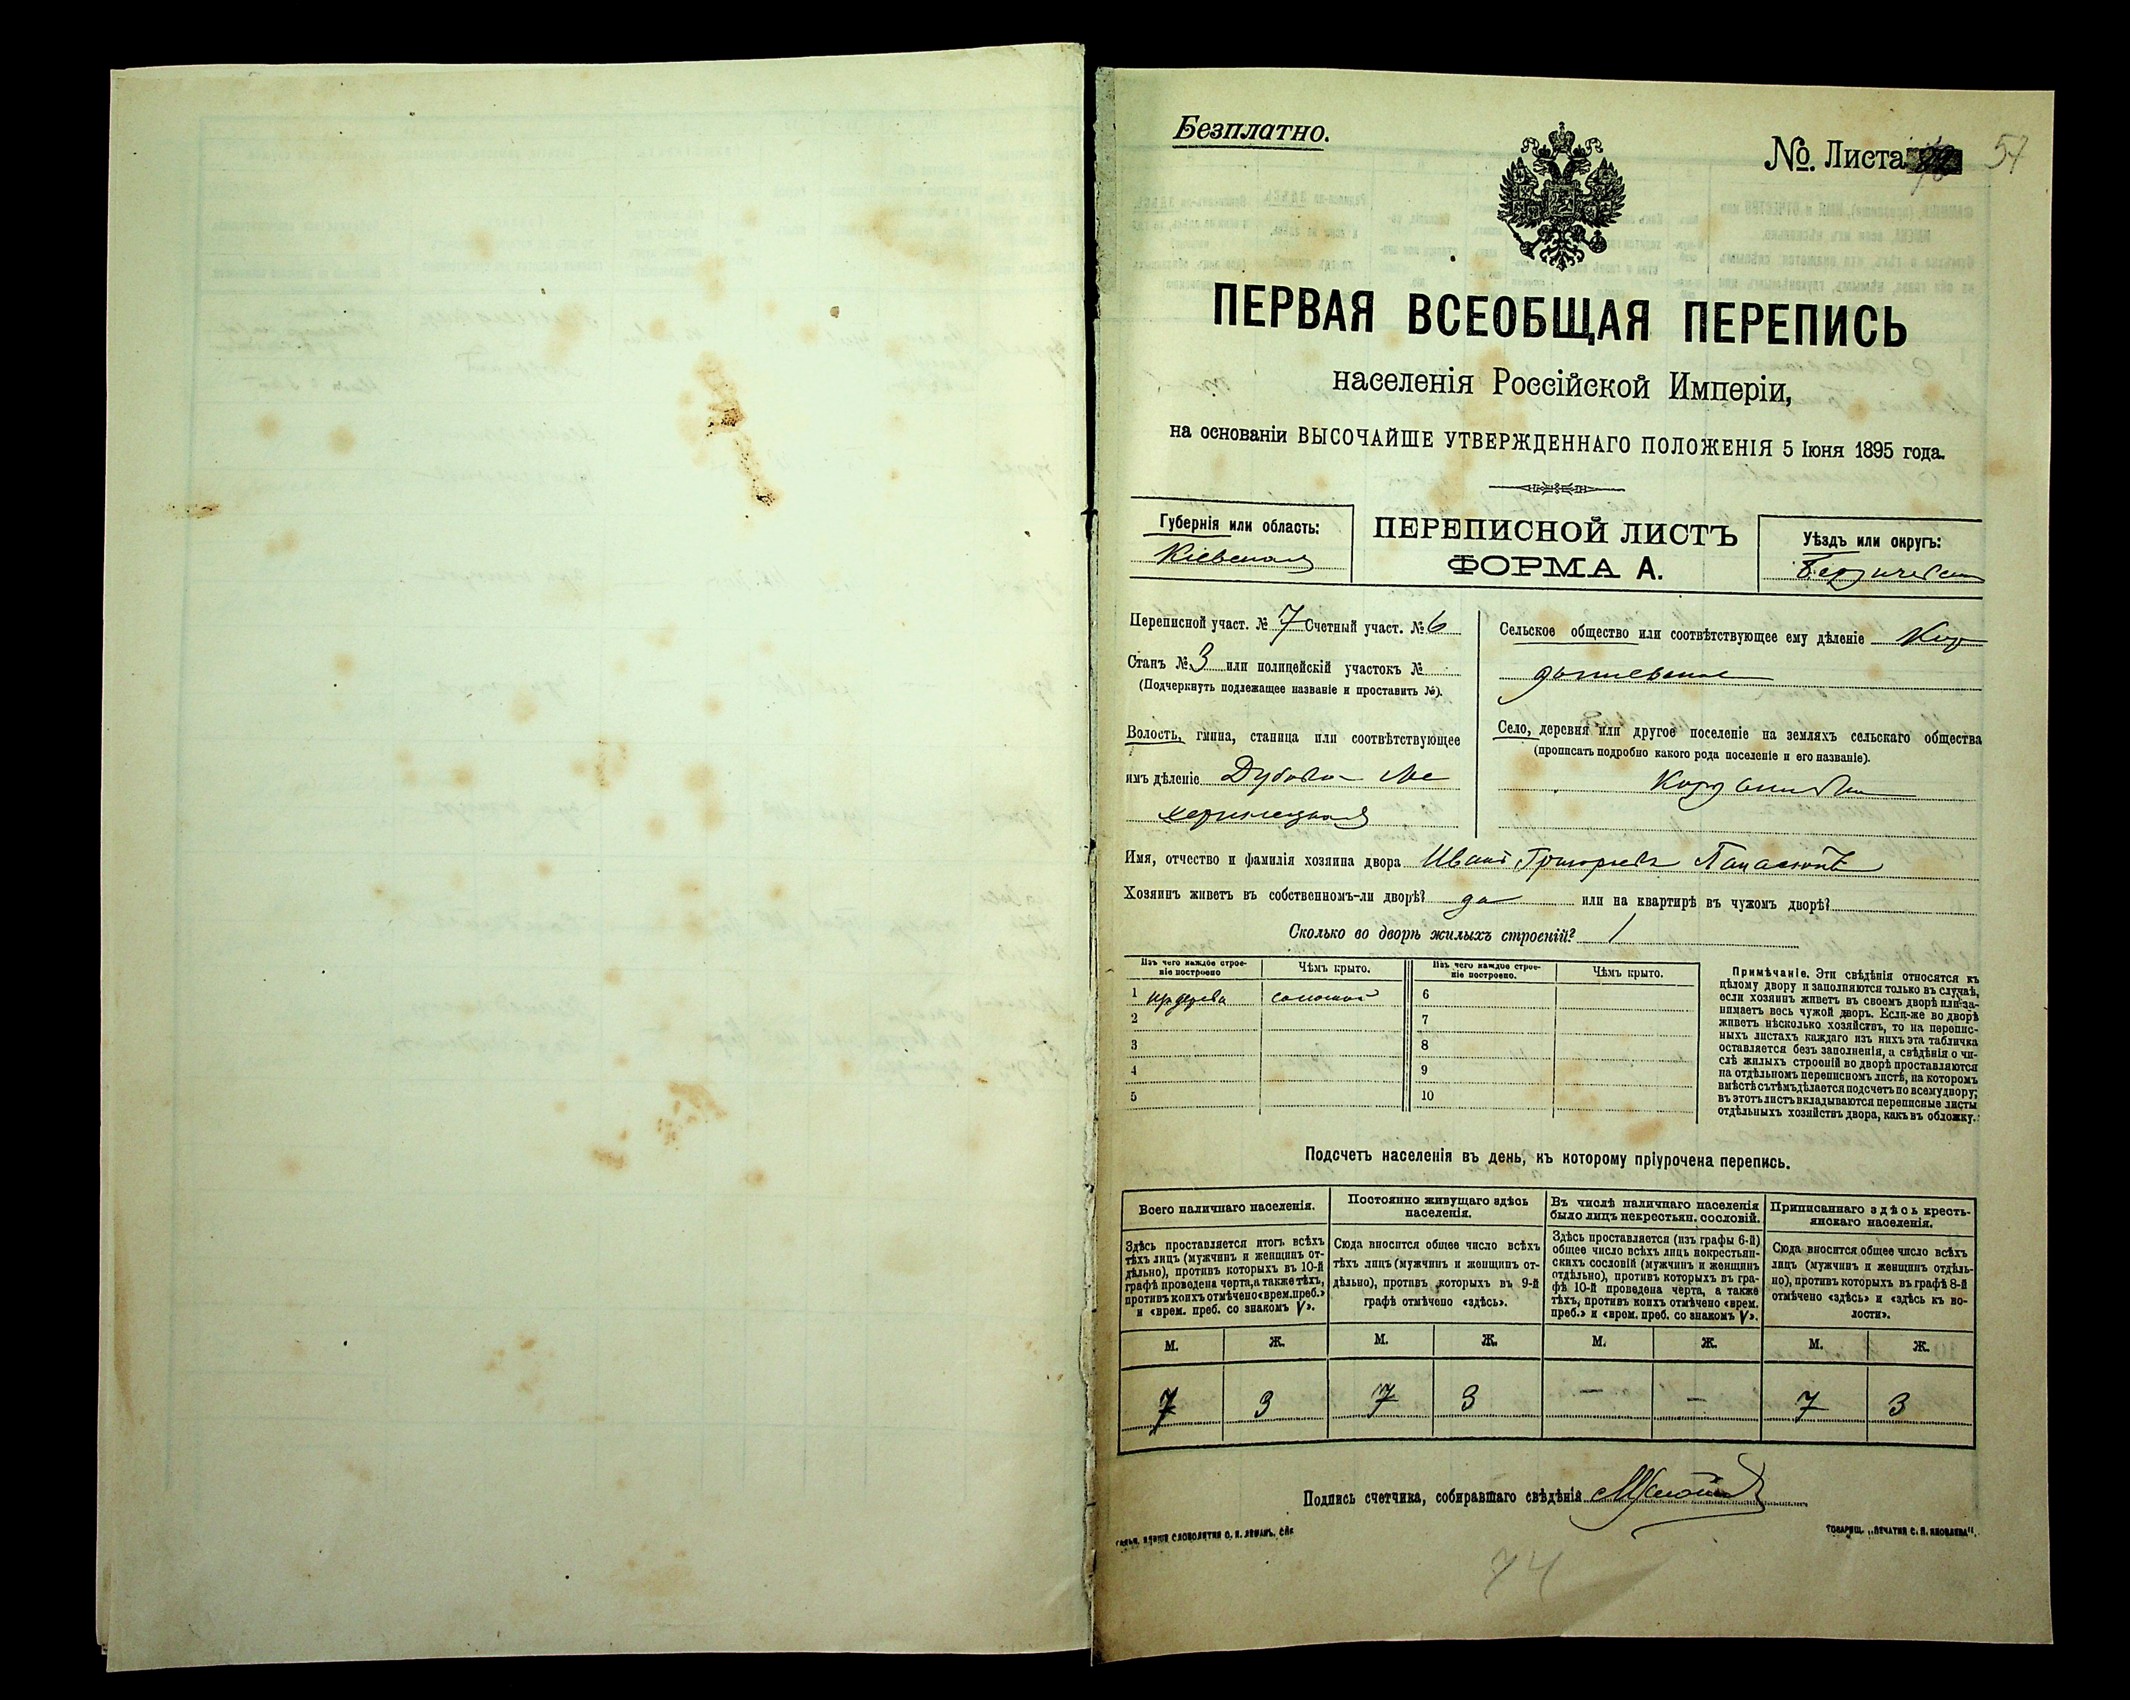 Безплатно.
№. Листа 57
ПЕРВАЯ ВСЕОБЩАЯ ПЕРЕПИСЬ
населенія Россійской Имперіи,
на основаніи ВЫСОЧАЙШЕ УТВЕРЖДЕННАГО ПОЛОЖЕНІЯ 5 Іюня 1895 года.
Губернія или область:
Кіевская
ПЕРЕПИСНОЙ ЛИСТЪ
ФОРМА А.
Уѣздъ или округъ:
Бердичевскій
Переписной участ. № 7 Счетный участ. № 6
Станъ № 3 или полицейскій участокъ №
(Подчеркнуть подлежащее названіе и проставить №).
Волость, гмина, станица или соотвѣтствующее
имъ дѣленіе Дубово-Ме
жеринецкая
Сельское общество или соотвѣтствующее ему дѣленіе Кор
дышевское
Село, деревня или другое поселеніе на земляхъ сельскаго общества
(прописать подробно какого рода поселеніе и его названіе).
Имя, отчество и фамилія хозяина двора Иванъ Григорьевъ Панасюкъ
Хозяинъ живетъ въ собственномъ-ли дворѣ? да или на квартирѣ въ чужомъ дворѣ?
Сколько во дворѣ жилыхъ строеній? 1
Изъ чего каждое строе-
ніе построено
Чѣмъ крыто.
Изъ чего каждое строе-
ніе построено.
Чѣмъ крыто.
1 изъ дерева соломой 6
2 7
3 8
4 9
5 10
Примѣчаніе. Эти свѣдѣнія относятся къ
цѣлому двору и заполняются только въ случаѣ,
если хозяинъ живетъ въ своемъ дворѣ или за-
нимаетъ весь чужой дворъ. Если-же во дворѣ
живетъ нѣсколько хозяйствъ, то на перепис-
ныхъ листахъ каждаго изъ нихъ эта табличка
оставляется безъ заполненія, а свѣдѣнія о чи-
слѣ жилыхъ строеній во дворѣ проставляются
на отдѣльномъ переписномъ листѣ, на которомъ
вмѣстѣ съ тѣмъ дѣлается подсчетъ по всему двору;
въ этотъ листъ вкладываются переписные листы
отдѣльныхъ хозяйствъ двора, какъ въ обложку.
Подсчетъ населенія въ день, къ которому пріурочена перепись.
Всего наличнаго населенія.
Здѣсь проставляется итогъ всѣхъ
тѣхъ лицъ (мужчинъ и женщинъ от-
дѣльно), противъ которыхъ въ 10-й
графѣ проведена черта, а также тѣхъ,
противъ коихъ отмѣчено «врем. преб.»
и «врем. преб. со знакомъ V».
Постоянно живущаго здѣсь
населенія.
Сюда вносится общее число всѣхъ
тѣхъ лицъ (мужчинъ и женщинъ от-
дѣльно), противъ которыхъ въ 9-й
графѣ отмѣчено «здѣсь».
Въ числѣ наличнаго населенія
было лицъ некрестьян. сословій.
Здѣсь проставляется (изъ графы 6-й)
общее число всѣхъ лицъ некрестьян-
скихъ сословій (мужчинъ и женщинъ
отдѣльно), противъ которыхъ въ гра-
фѣ 10-й проведена черта, а также
тѣхъ, противъ коихъ отмѣчено «врем.
преб.» и «врем. преб. со знакомъ V».
Приписаннаго здѣсь кресть-
янскаго населенія.
Сюда вносится общее число всѣхъ
лицъ (мужчинъ и женщинъ отдѣль-
но), противъ которыхъ въ графѣ 8-й
отмѣчено «здѣсь» и «здѣсь къ во-
лости».
М. Ж. М. Ж. М. Ж. М. Ж.
7 3 7 3 — — 7 3
Подпись счетчика, собиравшаго свѣдѣнія
СЛОВОЛИТНЯ О. И. ЛЕМАНЪ, СПБ
ТОВАРИЩ. „ПЕЧАТНЯ С. П. ЯКОВЛЕВА".
74